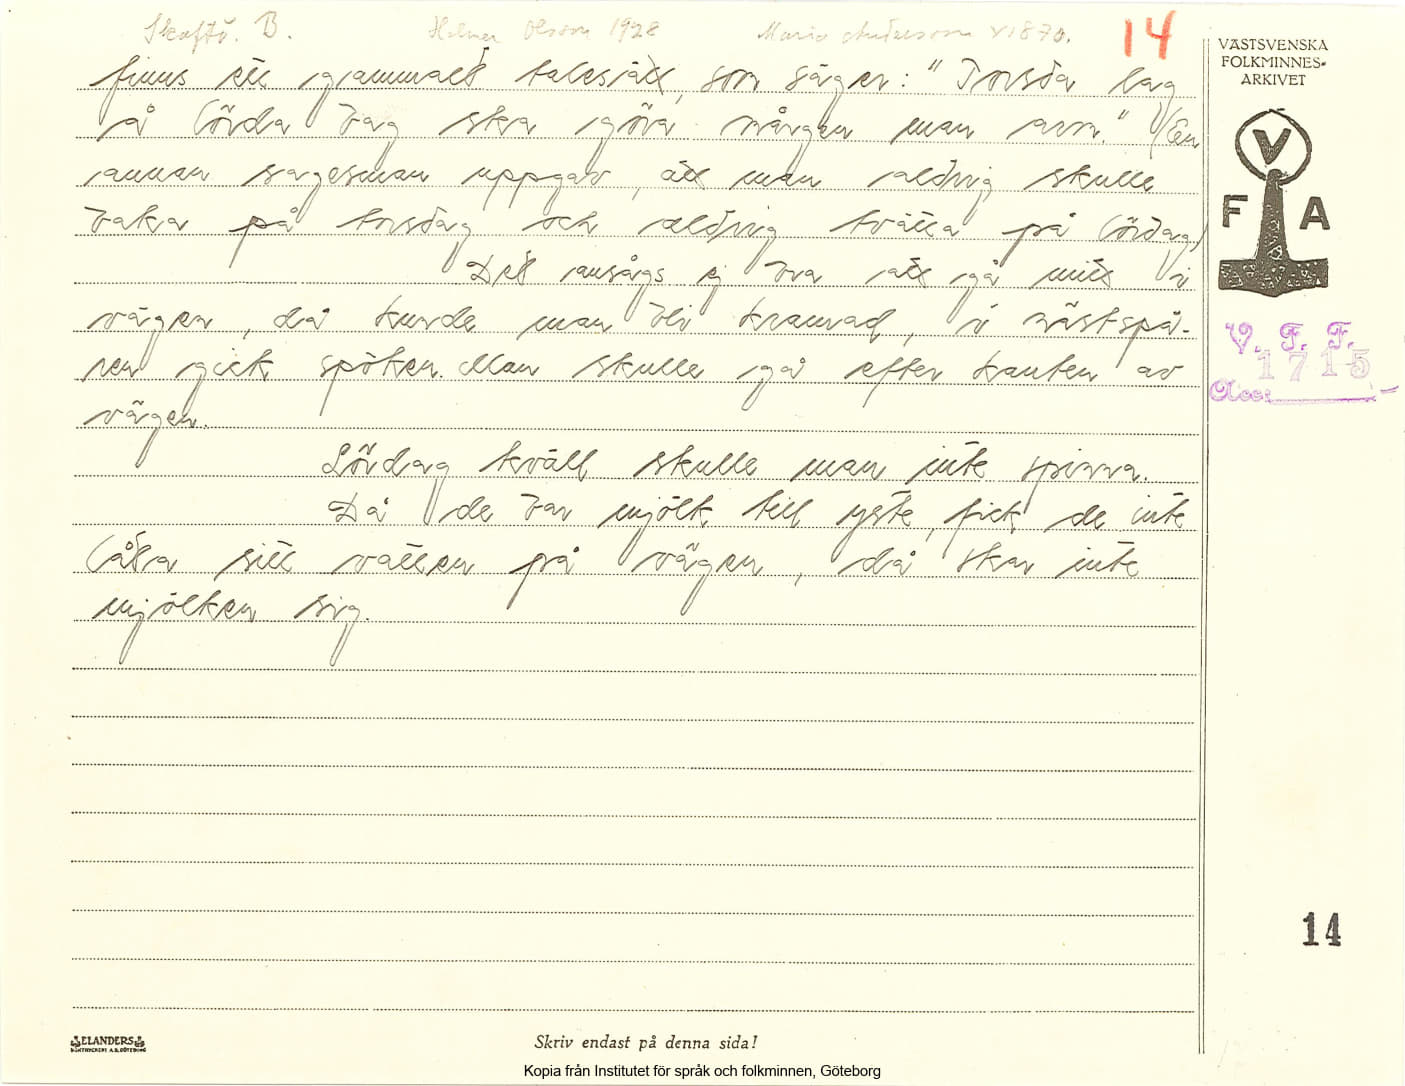 Skaftö. B. Helmer Olsson 1928 Maria Andersson f. 1870. 14
finns ett gammalt talesätt, som säger: "Torsda lag
å lörda bag ska göra mången man arm." (En
annan sagesman uppgav, att man aldrig skulle
baka på torsdag och aldrig tvätta på lördag)
Det ansågs ej bra att gå mitt i
vägen, då kunde man bli kramad, i hästspå-
ren gick spöken. Man skulle gå efter kanten av
vägen.
Lördag kväll skulle man inte spinna.
Då de bar mjölk till yste, fick de inte
låta sitt vatten på vägen, då skar inte
mjölken sig.
VÄSTSVENSKA
FOLKMINNES-
ARKIVET
V
F A
V. F. F.
1715
Acc:
14
ELANDERS
BOKTRYCKERI A.B. GÖTEBORG
Skriv endast på denna sida!
Kopia från Institutet för språk och folkminnen, Göteborg